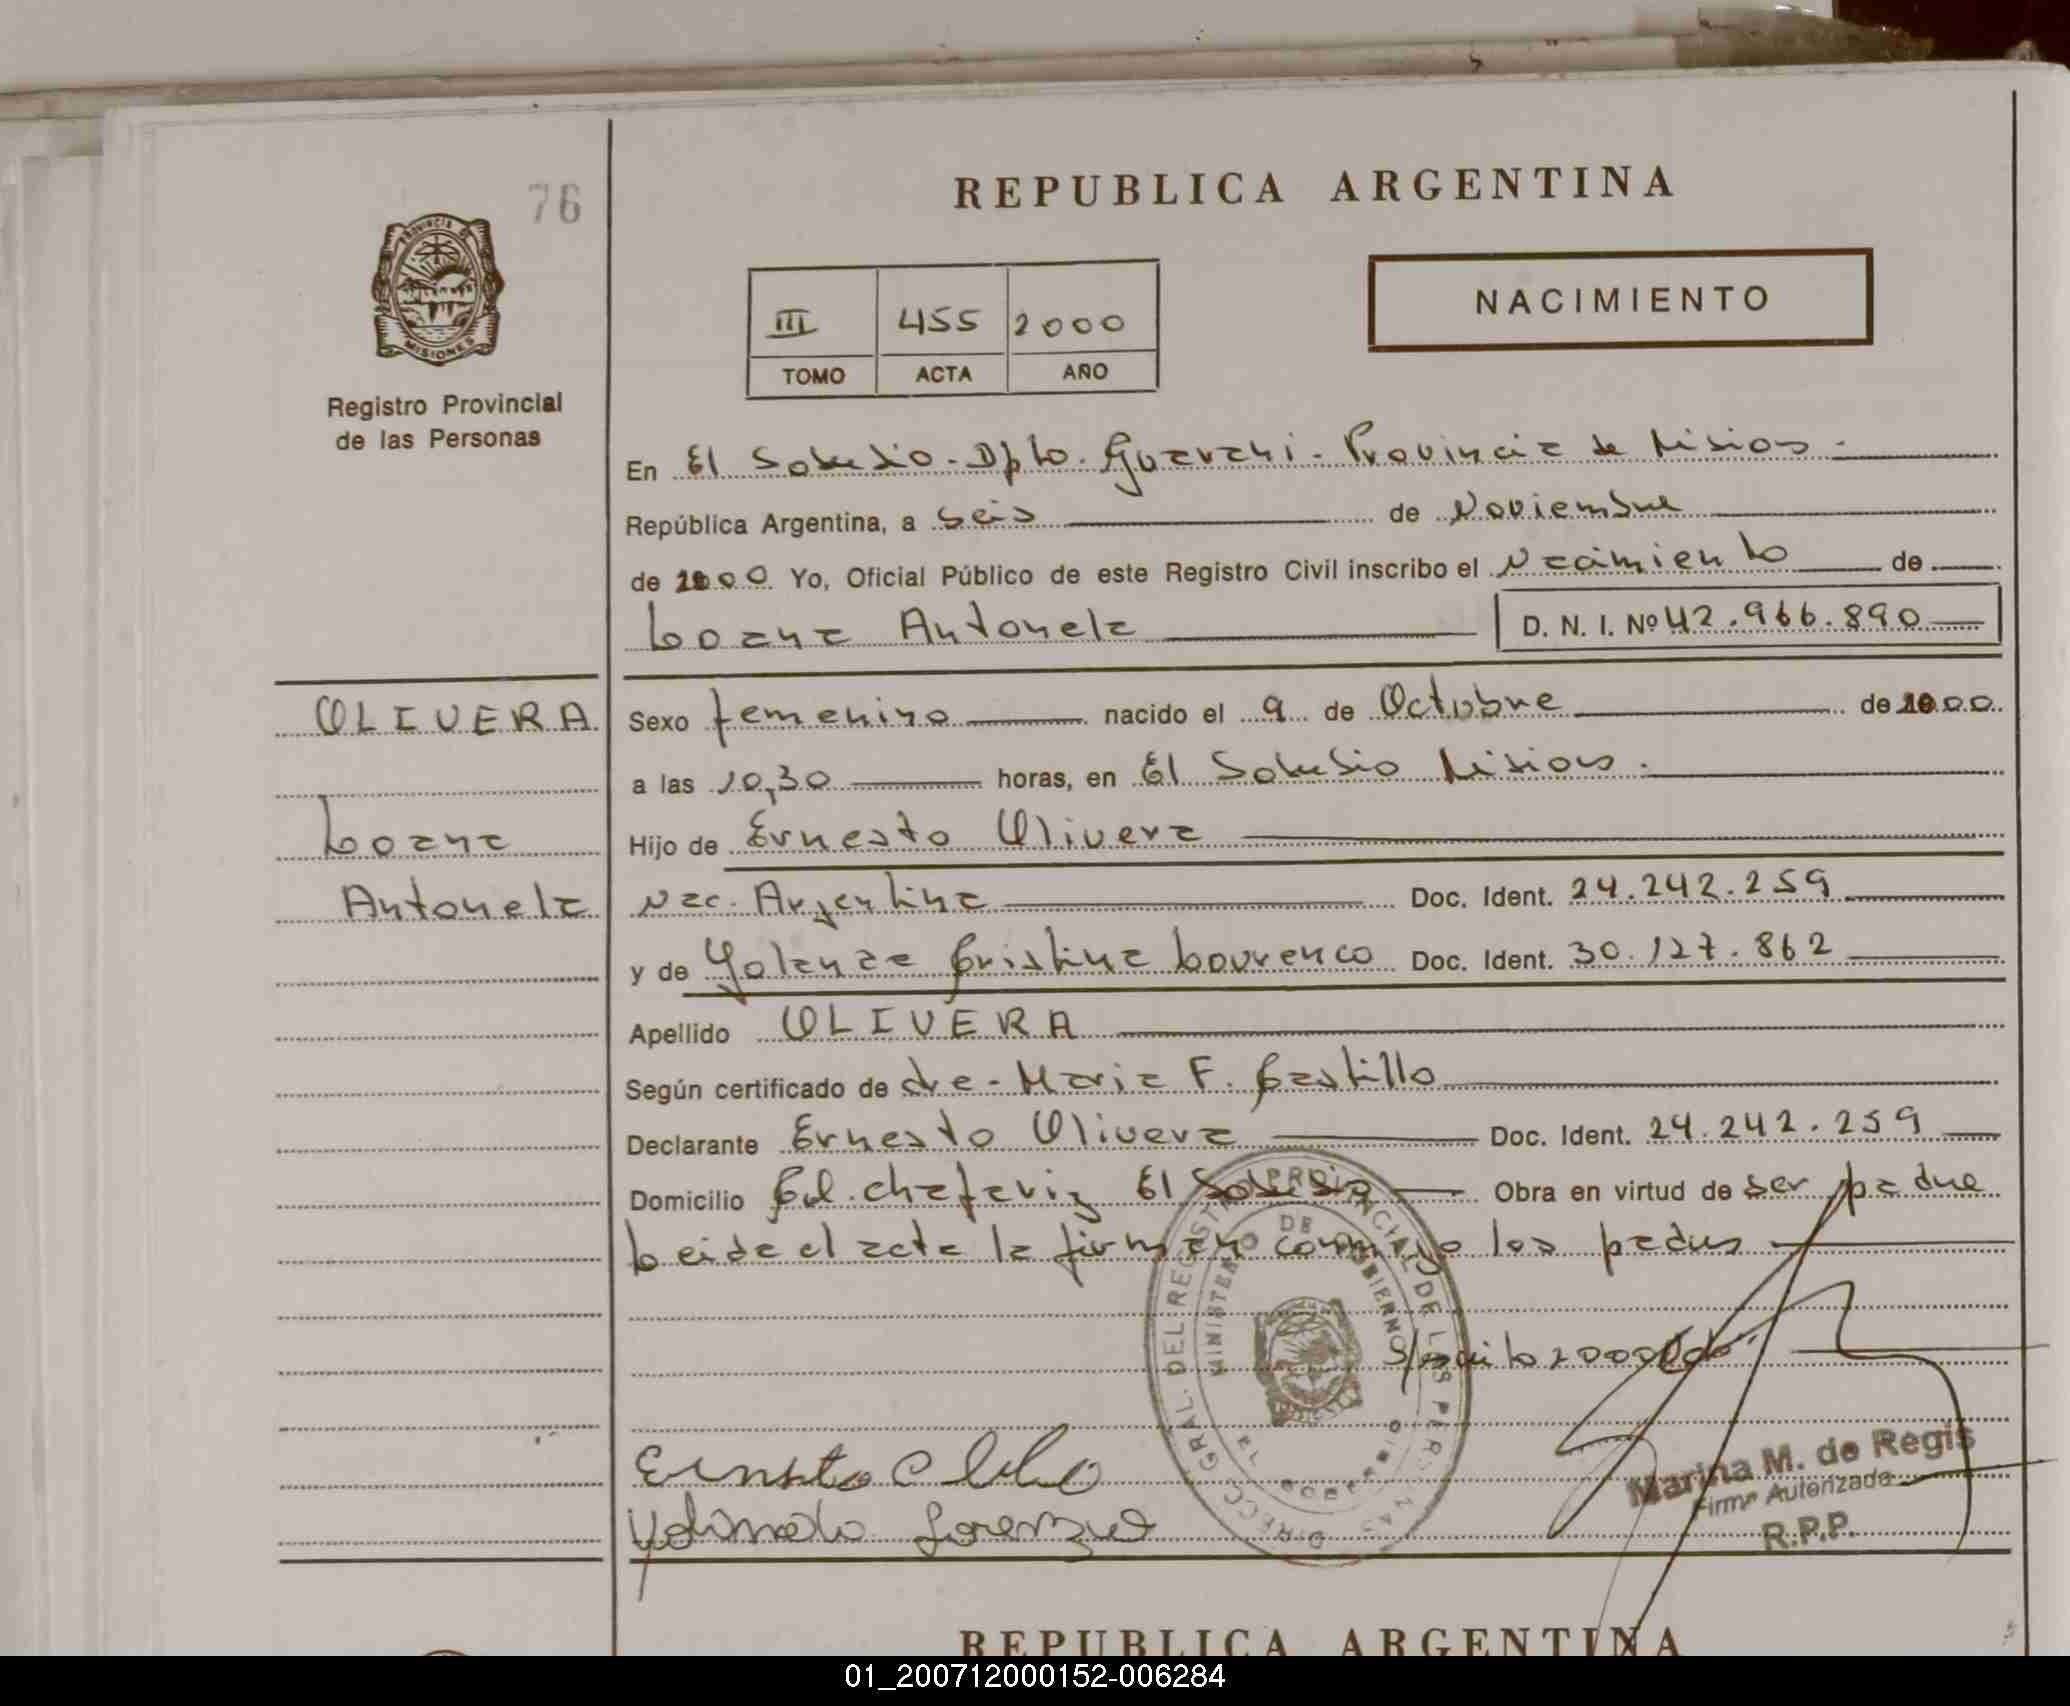 76
REPUBLICA ARGENTINA
PROVINCIA DE
MISIONES
Registro Provincial
de las Personas
III 455 2000
TOMO ACTA AÑO
NACIMIENTO
En El Soberbio - Dpto. Guarani - Provincia de Misiones -
República Argentina, a seis de Noviembre
de 2000 Yo, Oficial Público de este Registro Civil inscribo el Nacimiento de
Loana Antonela
D. N. I. Nº 42.966.890
OLIVERA
Loana
Antonela
Sexo femenino nacido el 9 de Octubre de 2000
a las 10,30 horas, en El Soberbio Misiones.
Hijo de Ernesto Olivera
Nac. Argentina Doc. Ident. 24.242.259
y de Yolanda Cristina Lourenco Doc. Ident. 30.127.862
Apellido OLIVERA
Según certificado de dra. Maria F. Castillo
Declarante Ernesto Olivera Doc. Ident. 24.242.259
Domicilio Col. Chafariz El Soberbio Obra en virtud de ser padre
Leida el acta la firman conmigo los padres
DIRECC. GRAL. DEL REGISTRO PROVINCIAL DE LAS PERSONAS
MINISTERIO DE GOBIERNO
Marina M. de Regis
Firma Autorizada
R.P.P.
REPUBLICA ARGENTINA
01_200712000152-006284